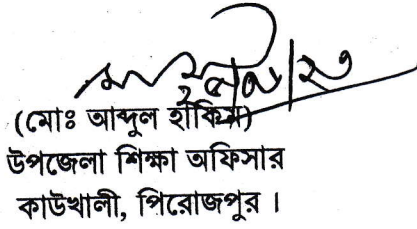 (মোঃ আব্দুল হাকিম)
উপজেলা শিক্ষা অফিসার
কাউখালী, পিরোজপুর ।